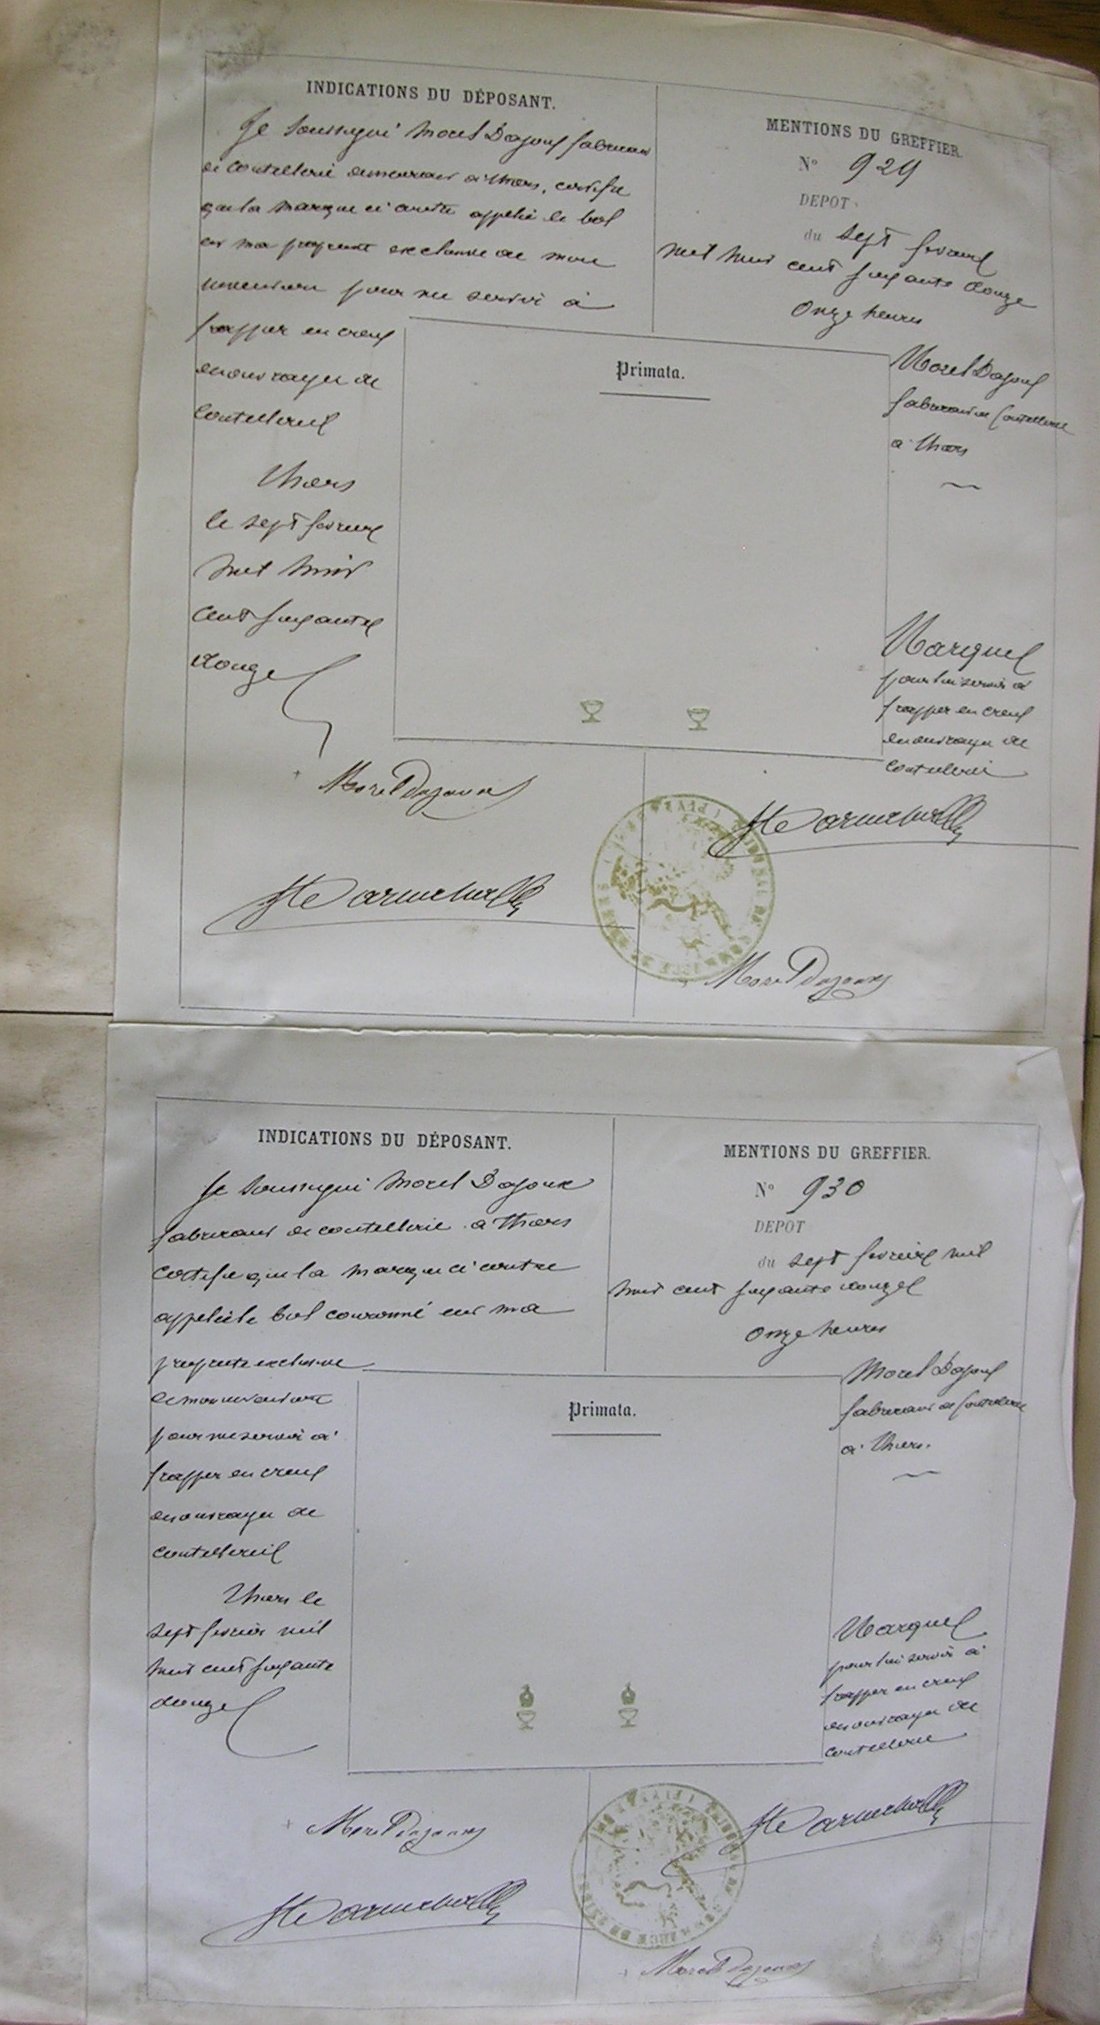 INDICATIONS DU DÉPOSANT.
Je soussigné Morel Dajoux fabricant
de coutellerie demeurant à thiers, certifie
que la marque ci contre appelée le bol
est ma propriété exclusive de mon
invention pour me servir à
frapper en creux
mes ouvrages de
Coutellerie
thiers
le sept février
mil huit
cent soixante
douze
Morel Dajoux
MENTIONS DU GREFFIER.
N° 929
DEPOT
du sept février
mil huit cent soixante douze
onze heures
Morel Dajoux
fabricant de Coutellerie
à thiers
Primata.
Marque
pour lui servir à
frapper en creux
ses ouvrages de
coutellerie
Morel Dajoux
INDICATIONS DU DÉPOSANT.
Je soussigné Morel Dajoux
fabricant de coutellerie à thiers
certifie que la marque ci contre
appelée le bol couronné est ma
propriété exclusive
de mon invention
pour me servir à
frapper en creux
mes ouvrages de
coutellerie
thiers le
sept février mil
huit cent soixante
douze
Morel Dajoux
MENTIONS DU GREFFIER.
N° 930
DEPOT
du sept février mil
huit cent soixante douze
onze heures
Morel Dajoux
fabricant de Coutellerie
à thiers.
Primata.
Marque
pour lui servir à
frapper en creux
ses ouvrages de
coutellerie
Morel Dajoux